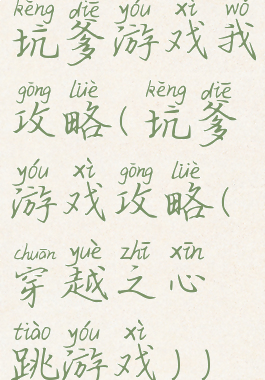 kēng diē yóu xì wǒ
坑爹游戏我
gōng lüè kēng diē
攻略(坑爹
yóu xì gōng lüè
游戏攻略(
chuān yuè zhī xīn
穿越之心
tiào yóu xì
跳游戏))